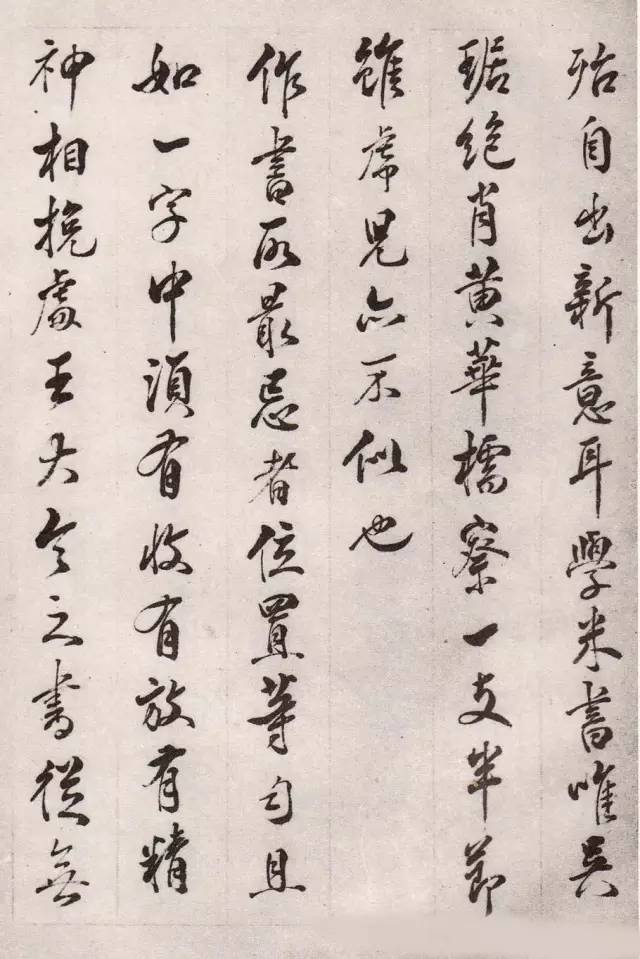 殆自出新意耳學米書唯吳
琚絶肖黄華樗寮一支半節
雖虎兒亦不似也
作書所最忌者位置等勻且
如一字中須有收有放有精
神相挽處王大令之書從無